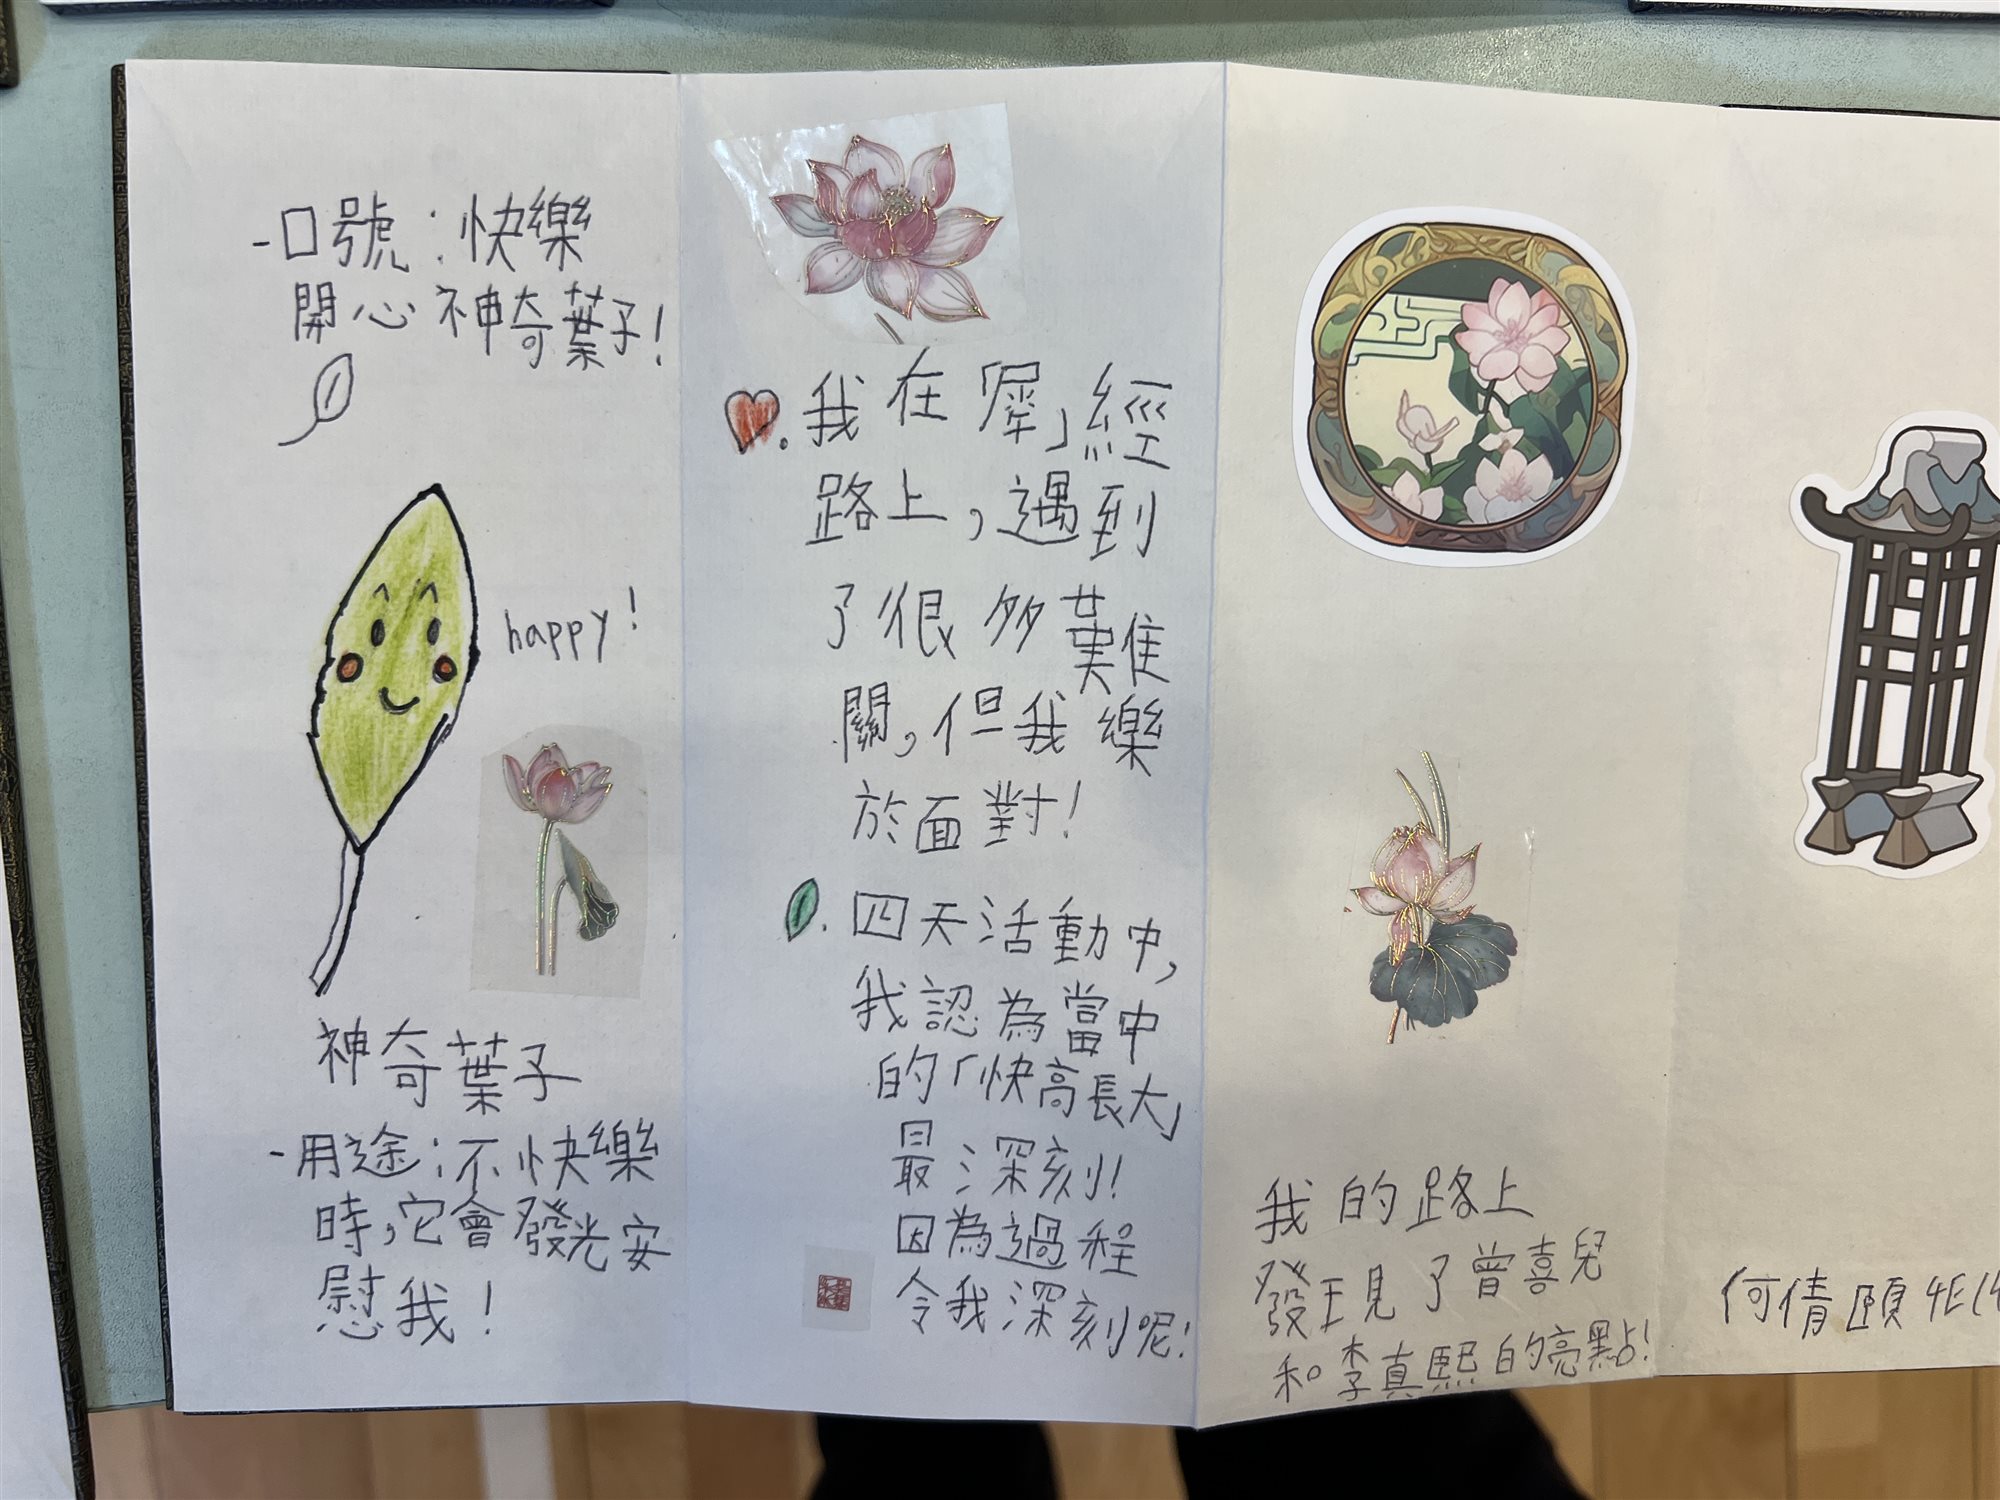 -口號：快樂
開心神奇葉子！
happy!
神奇葉子
-用途：不快樂
時,它會發光安
慰我！
我在
經
路上,遇到
了很多難
關,但我樂
於面對！
四天活動中,
我認為當中
的「快高長大」
最深刻！
因為過程
令我深刻呢！
我的路上
發現了曾喜兒
和李真熙的亮點！
何倩頤